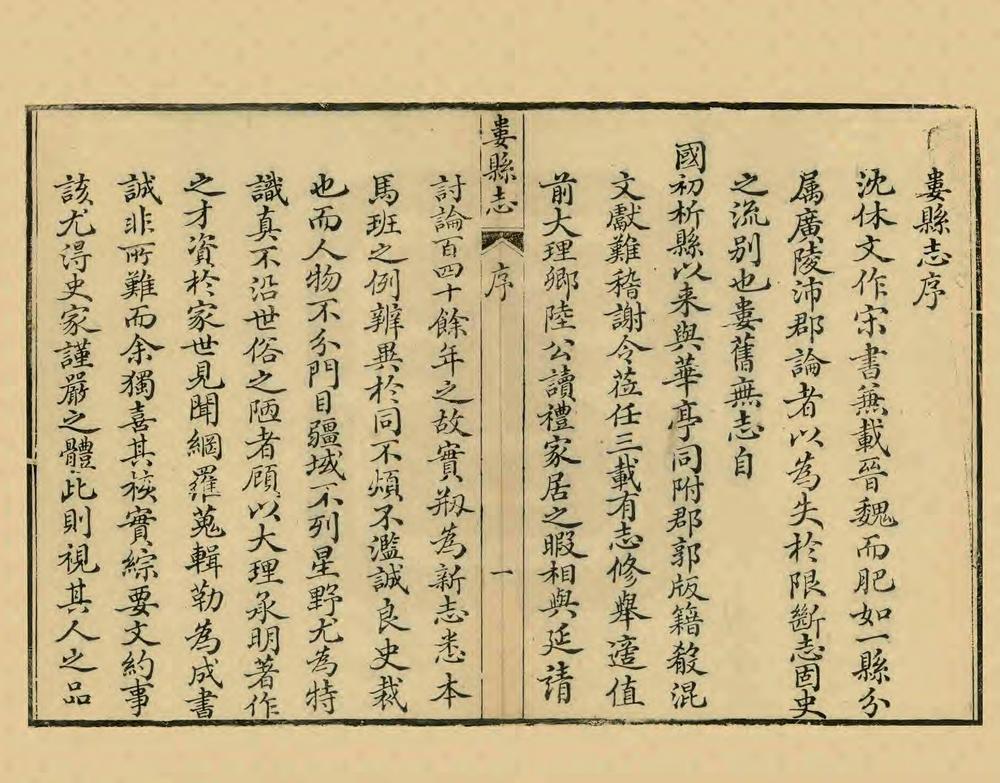 婁縣志序
沈休文作宋書兼載晉魏而肥如一縣分
属廣陵沛郡論者以為失於限斷志固史
之流别也婁舊無志自
國初析縣以来與華亭同附郡郭版籍殽混
文獻難稽謝令莅任三載有志修舉適值
前大理卿陸公讀禮家居之暇相與延請
婁縣志
序
一
討論百四十餘年之故實刱為新志悉本
馬班之例辨異於同不煩不濫誠良史裁
也而人物不分門目疆域不列星野尤為特
識真不沿世俗之陋者顧以大理承明著作
之才資於家世見聞網羅蒐輯勒為成書
誠非所難而余獨喜其核實綜要文約事
該尤得史家謹嚴之體此則視其人之品